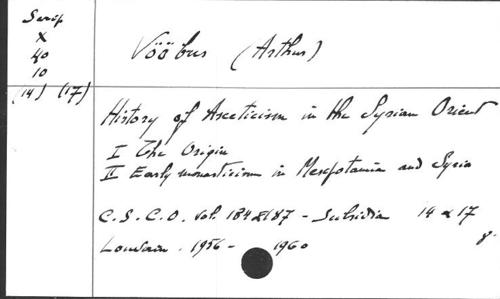 Scrip
X
40
10
(14) (17)
Vööbus (Arthur)
History of Asceticism in the Syrian Orient
I The Origin
II Early monasticism in Mesopotamia and Syria
C.S.C.O. vol. 184 & 187 - Subsidia 14 & 17
Louvain. 1956 - 1960 8°